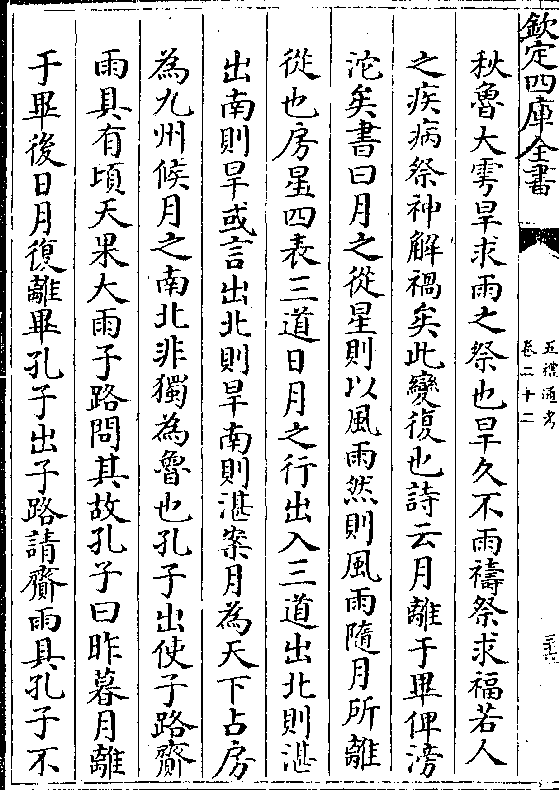 欽定四庫全書
五禮通考
卷二十二
三六
秋魯大雩旱求雨之祭也旱久不雨禱祭求福若人
之疾病祭神解禍矣此變復也詩云月離于畢俾滂
沱矣書曰月之從星則以風雨然則風雨隨月所離
從也房星四表三道日月之行出入三道出北則湛
出南則旱或言出北則旱南則湛案月為天下占房
為九州候月之南北非獨為魯也孔子出使子路齎
雨具有頃天果大雨子路問其故孔子曰昨暮月離
于畢後日月復離畢孔子出子路請齎雨具孔子不